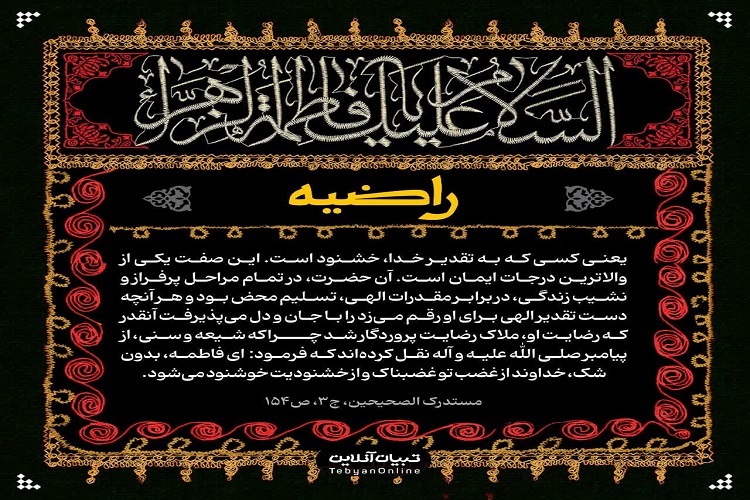 السلام علیک یا فاطمة الزهرا
راضیه
یعنی کسی که به تقدیر خدا، خشنود است. این صفت یکی از
والاترین درجات ایمان است. آن حضرت، در تمام مراحل پرفراز و
نشیب زندگی، در برابر مقدرات الهی، تسلیم محض بود و هر آنچه
دست تقدیر الهی برای او رقم می‌زد را با جان و دل می‌پذیرفت آنقدر
که رضایت او، ملاک رضایت پروردگار شد چراکه شیعه و سنی، از
پیامبر صلی الله علیه و آله نقل کرده‌اند که فرمود: ای فاطمه، بدون
شک، خداوند از غضب تو غضبناک و از خشنودیت خوشنود می‌شود.
مستدرک الصحیحین، ج۳، ص۱۵۴
تبیان آنلاین
TebyanOnline